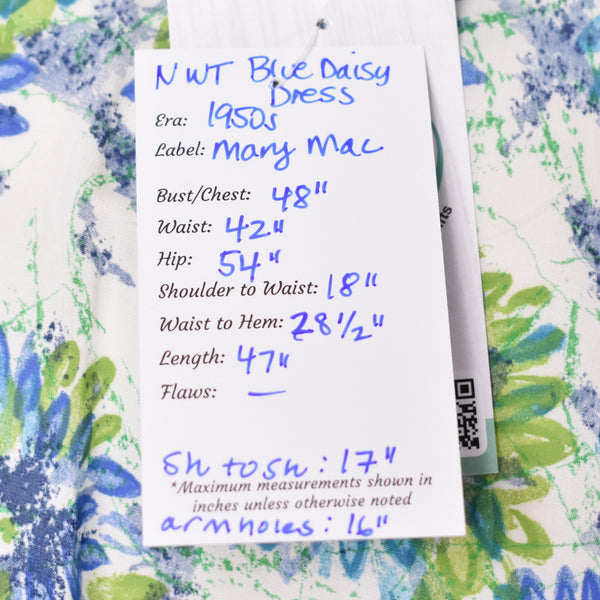 NWT Blue Daisy
Dress
Era: 1950s
Label: Mary Mac
Bust/Chest: 48"
Waist: 42"
Hip: 54"
Shoulder to Waist: 18"
Waist to Hem: 28 1/2"
Length: 47"
Flaws: —
Sh to Sh: 17"
*Maximum measurements shown in
inches unless otherwise noted
armholes: 16"